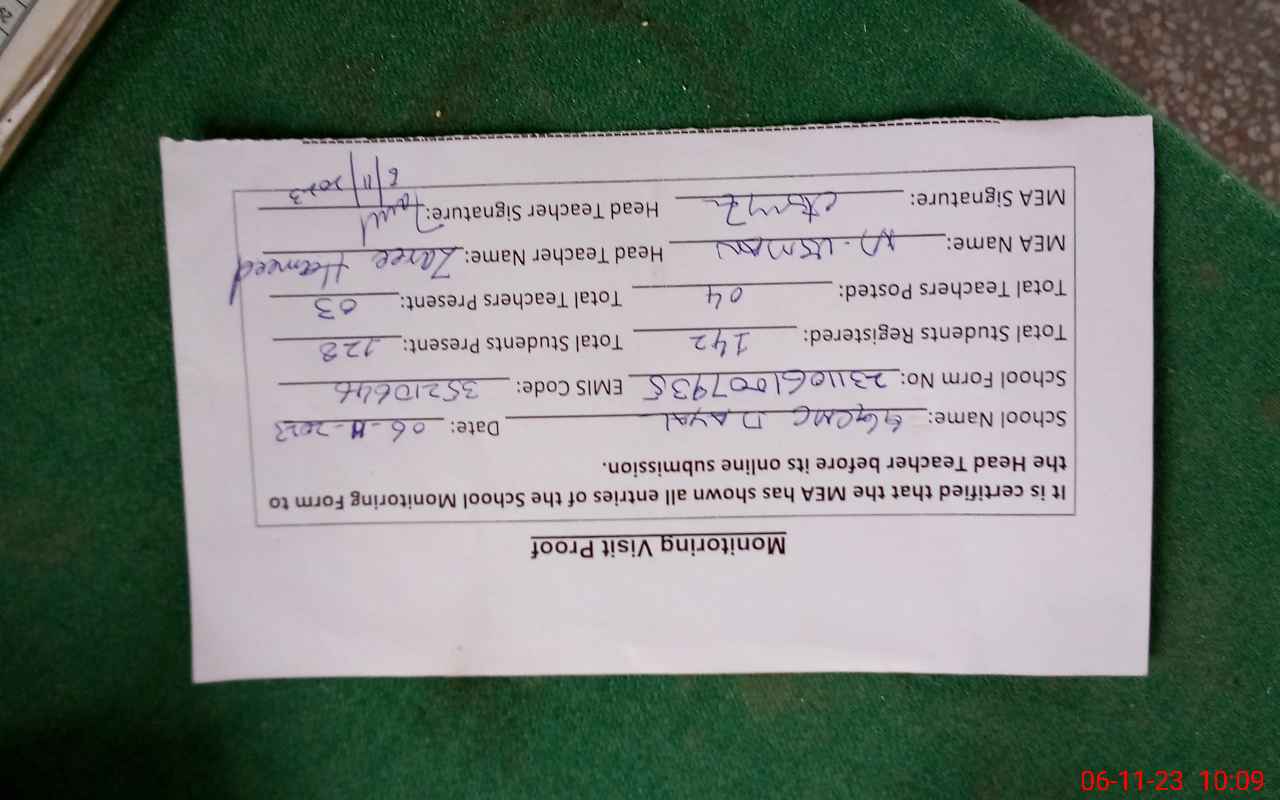 Monitoring Visit Proof
It is certified that the MEA has shown all entries of the School Monitoring Form to
the Head Teacher before its online submission.
School Name: GGCMC DAYAL Date: 06-11-2023
School Form No: 2311061007935 EMIS Code: 35210646
Total Students Registered: 142 Total Students Present: 128
Total Teachers Posted: 04 Total Teachers Present: 03
MEA Name: M-USMAN Head Teacher Name: Hameed
MEA Signature: Head Teacher Signature:
6/11/2023
06-11-23 10:09